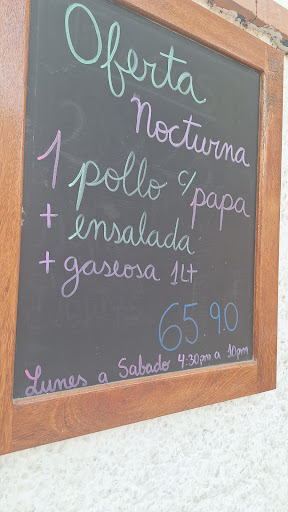 Oferta
Nocturna
1 pollo c/papa
+ ensalada
+ gaseosa 1Lt
65.90
Lunes a Sabado 4:30pm a 10pm